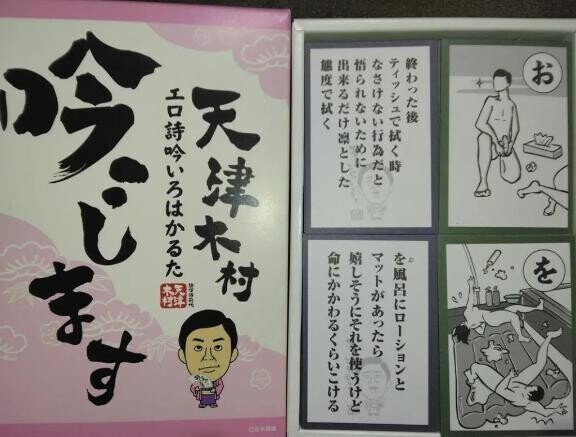 吟じます
天津木村
エロ詩吟いろはかるた
天津
木村
終わった後
ティッシュで拭く時
なさけない行為だと
悟られないために
出来るだけ凛とした
態度で拭く
お
を風呂にローションと
お
マットがあったら
嬉しそうにそれを使うけど
命にかかわるくらいこける
を